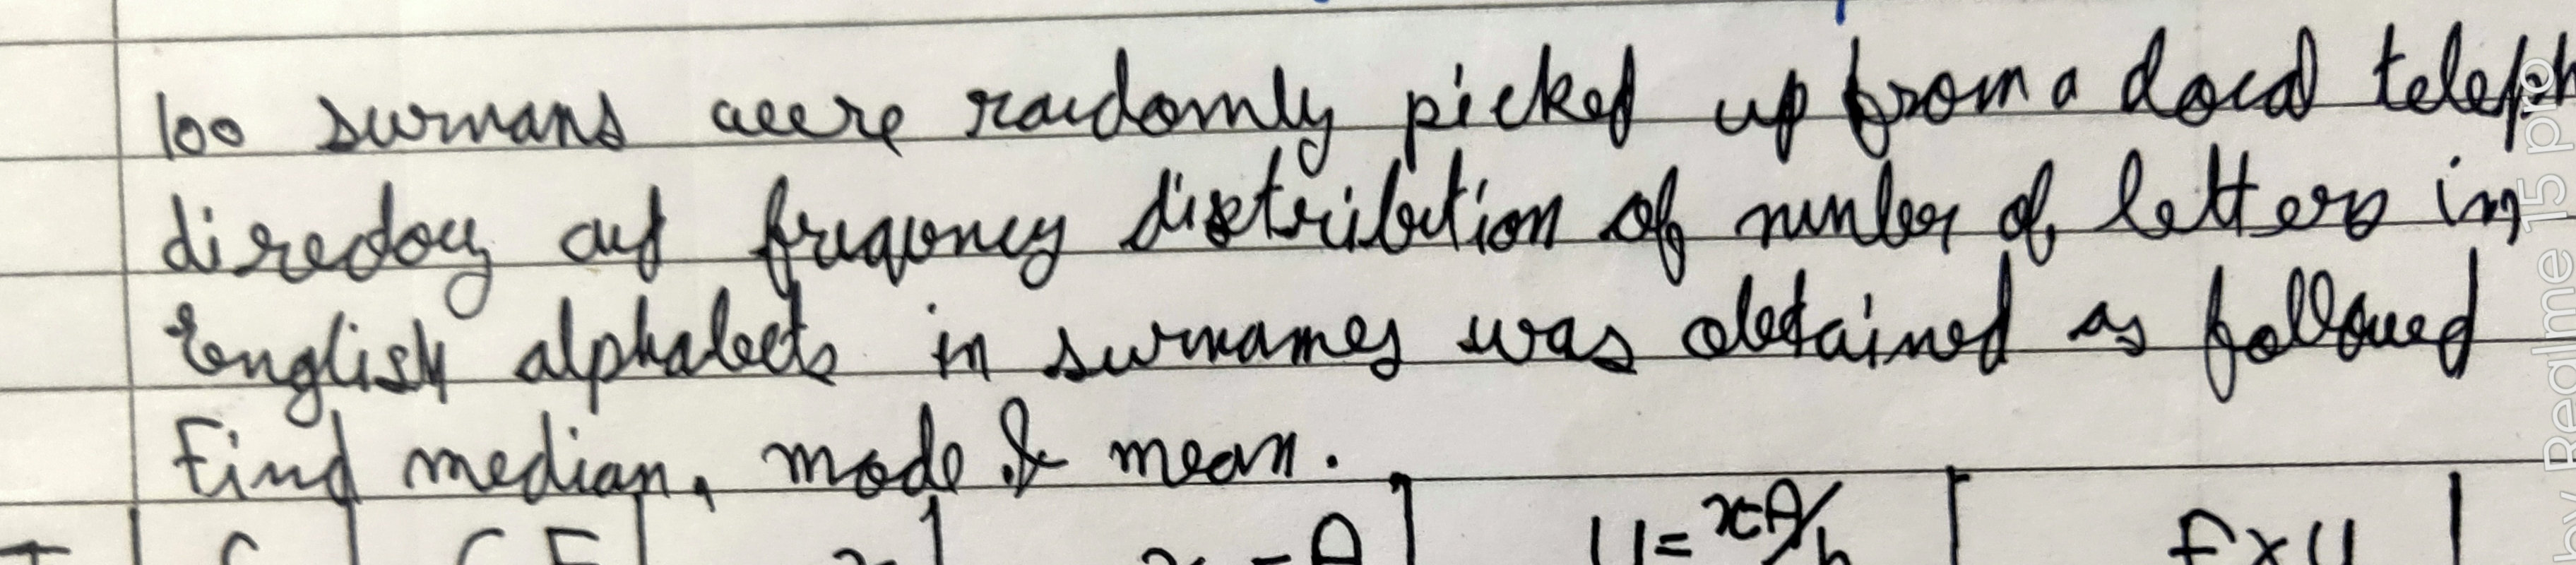 100 surmans were randomly picked up from a local teleph
diredory and frequency distribution of number of letters in
English alphabets in surnames was obtained as followed
Find median, mode & mean.
f CF x x - A U = x-A/h f x U
by Realme 15 pro